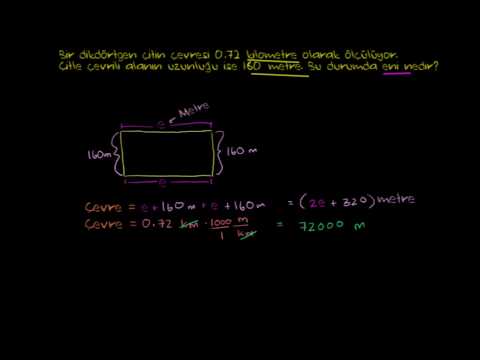 Bir dikdörtgen çitin çevresi 0.72 kilometre olarak ölçülüyor.
Çitle çevrili alanın uzunluğu ise 160 metre. Bu durumda eni nedir?
e Metre
160m
160 m
e
Çevre = e+160m+e+160m = (2e + 320) metre
Çevre = 0.72 km · 1000/1 m/km = 72000 m